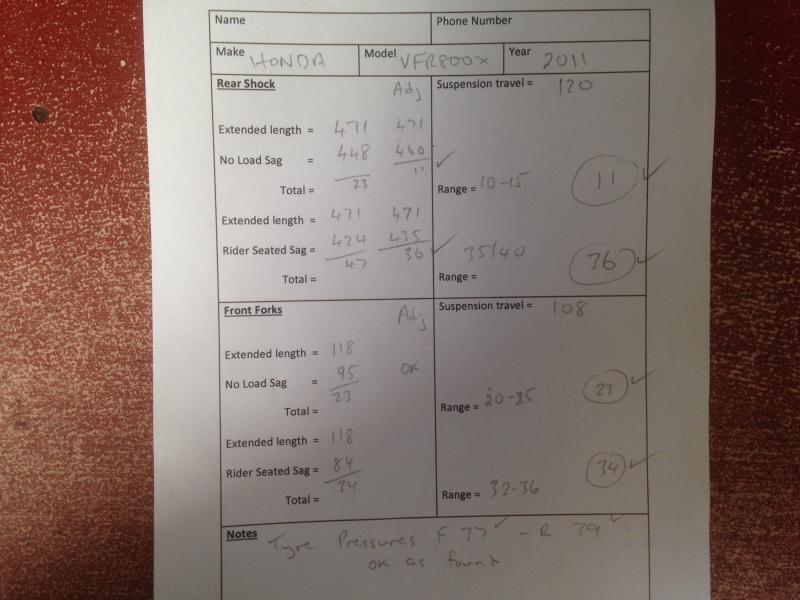 Name Phone Number
Make HONDA Model VFR800X Year 2011
Rear Shock Adj Suspension travel = 120
Extended length = 471 471
No Load Sag = 448 460 ✓
Total = 23 11 Range = 10-15 11 ✓
Extended length = 471 471
Rider Seated Sag = 424 435 ✓ 35/40 36 ✓
Total = 47 36 Range =
Front Forks Adj Suspension travel = 108
Extended length = 118
No Load Sag = 95 OK
Total = 23 Range = 20-25 23 ✓
Extended length = 118
Rider Seated Sag = 84
Total = 34 Range = 32-36 34 ✓
Notes Tyre Pressures F 37 ✓ - R 39 ✓
OK as found.